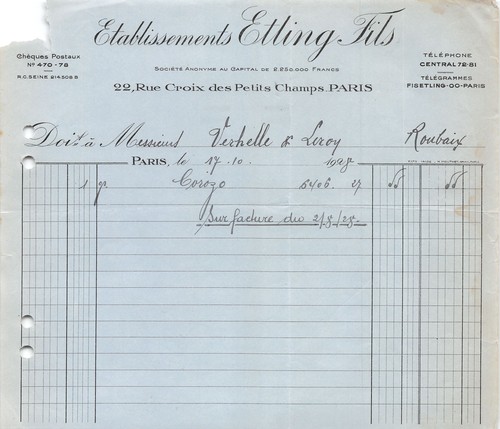 Etablissements Etling Fils
Chèques Postaux
Nº 470-78
R.C. SEINE 214.506 B
SOCIÉTÉ ANONYME AU CAPITAL DE 2.250.000 FRANCS
22, Rue Croix des Petits Champs. PARIS
TÉLÉPHONE
CENTRAL 72-81
TÉLÉGRAMMES
FISETLING-OO-PARIS
Doit à Messieurs Verhelle & Leroy Roubaix
PARIS, le 17. 10. 1928
1 gr Corozo 5406. 27
Sur facture du 2/8/28.